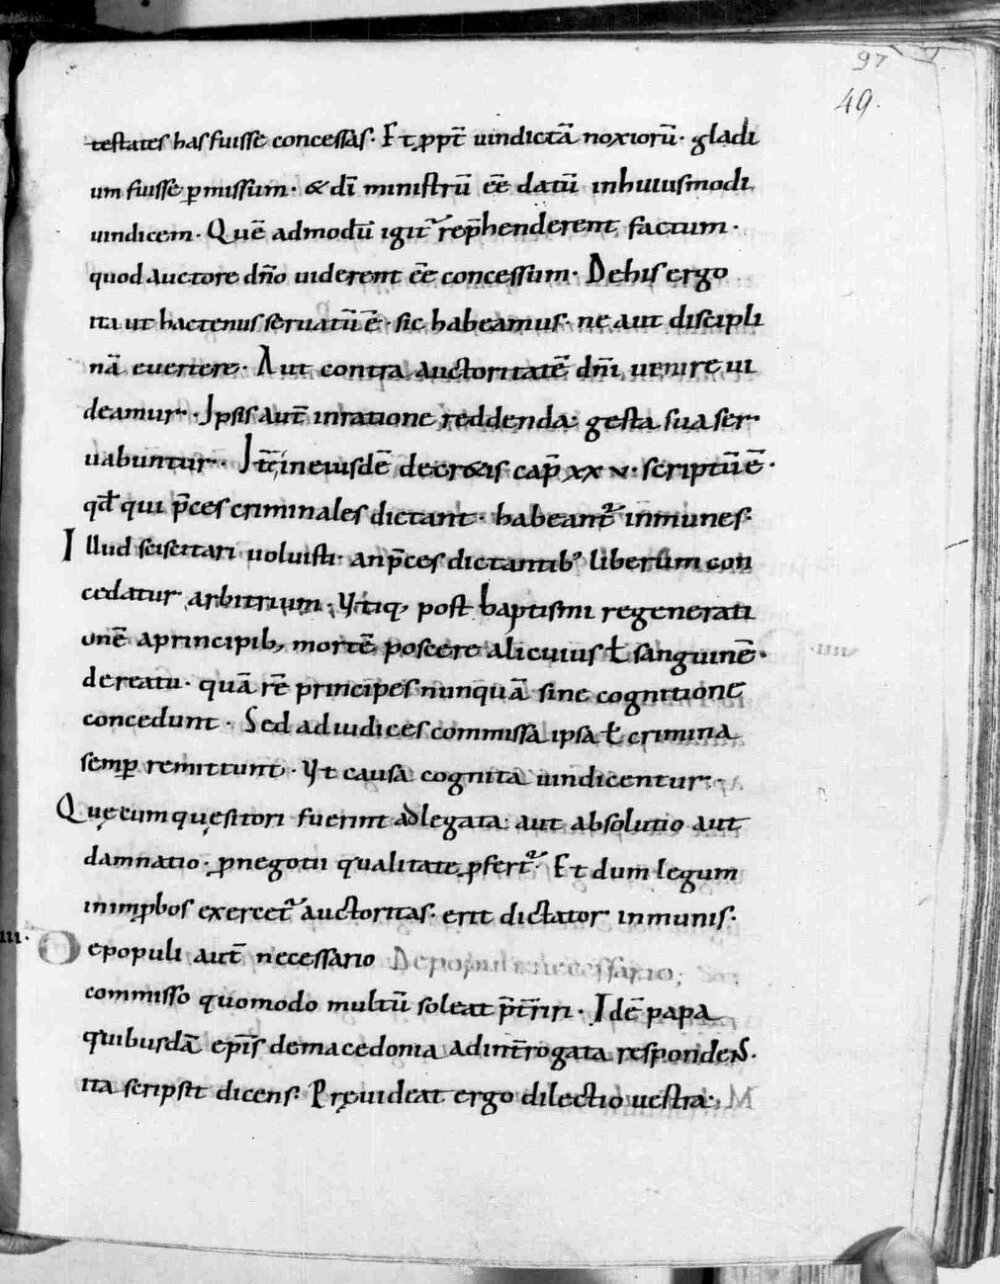 97
49.
testates has fuisse concessas· Et ꝓpt̄ uindictā noxiorū· gladi
um fuisse ꝑmissum· & dī ministrū eē datū inhuiusmodi
uindicem· Quē admodū igit᷑ rep̄henderent factum·
quod auctore dn̄o uiderent eē concessum· Dehis ergo
ita ut hactenus seruatū ē· sic habeamus· ne aut discipli
nā euertere· Aut contra auctoritatē dn̄i uenire ui
deamur· Ipsis aut̄ inratione reddenda· gesta sua ser
uabuntur· It̄ ineiusdē decr&is cap̄ xx v· scriptū ē·
qđ qui p̄ces criminales dictant· habeant᷑ inmunes·
Illud sciscitari uoluisti· anp̄ces dictantibꝰ liberum con
cedatur arbitrium· Vtiq; post baptismi regenerati
onē aprincipib; mortē poscere alicuius ł sanguinē·
dereatu· quā rē principes nunquā sine cognitione
concedunt· Sed adiudices commissa ipsa ł crimina
semꝑ remittunt· Vt causa cognita uindicentur·
Quę cum quęsitori fuerint adlegata· aut absolutio aut
damnatio· ꝓnegotii qualitate ꝓfert᷑· Et dum legum
inimꝓbos exercet᷑ auctoritas· erit dictator inmunis·
III· Depopuli aut̄ necessario Depopuli necessario;
commisso quomodo multū soleat p̄t̄riri· Idē papa
quibusdā ep̄is demacedonia adint̄rogata respondens·
ita scripsit dicens· Pręuideat ergo dilectio uestra·